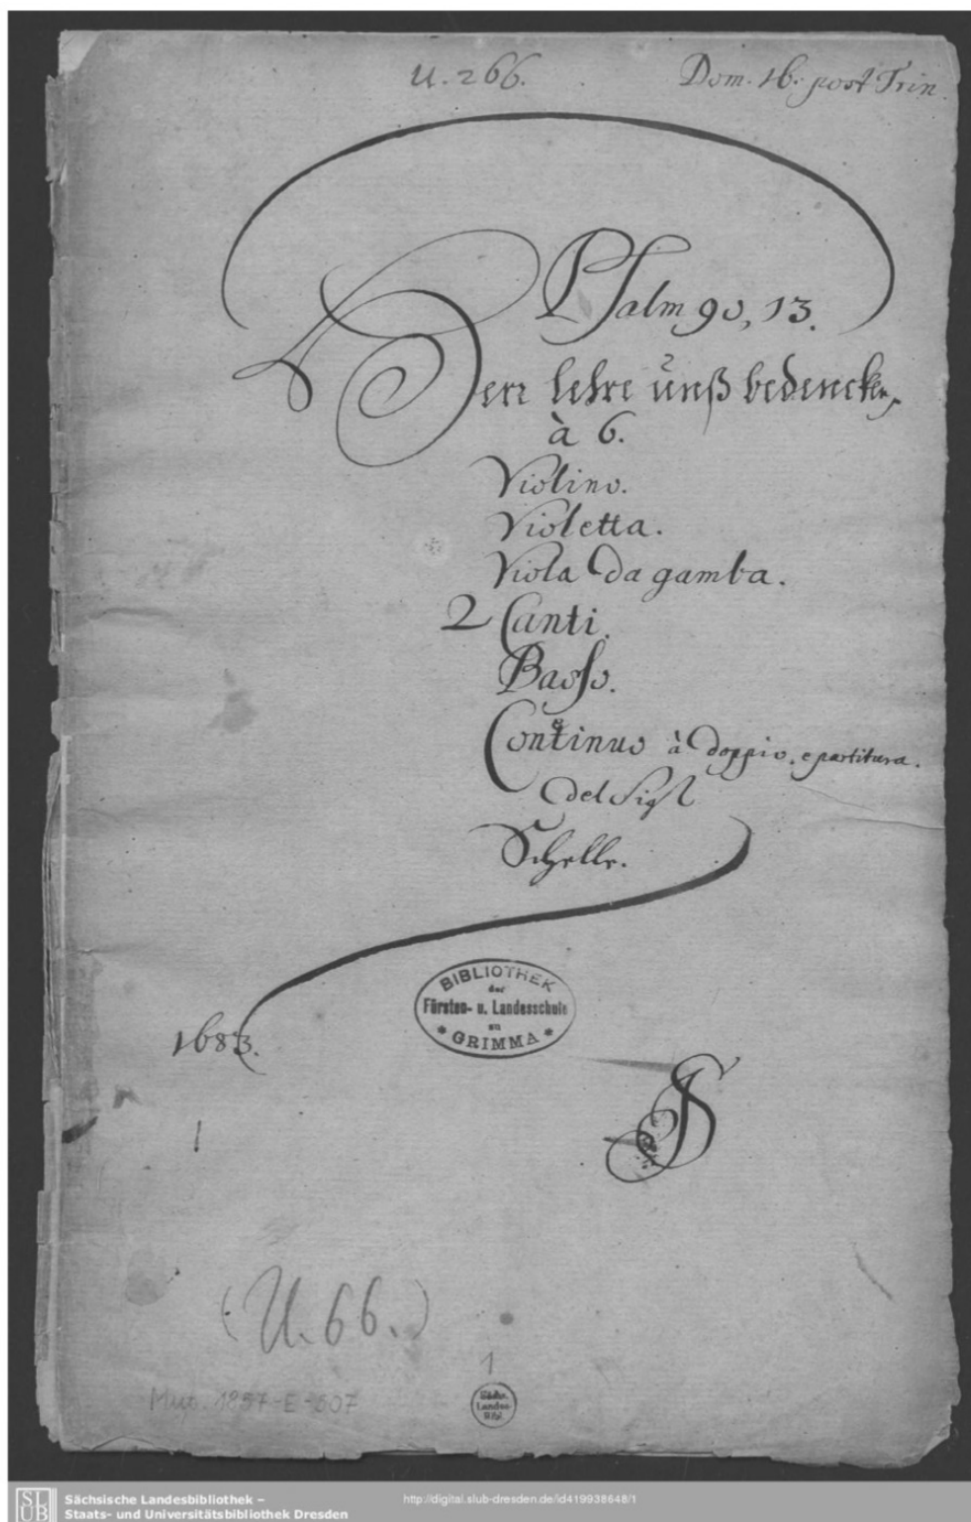 U. 266.
Dom. 16. post Trin.
Psalm 90, 13.
Herr lehre unß bedencken,
à 6.
Violino.
Violetta.
Viola da gamba.
2 Canti.
Basso.
Continuo à doppio. e partitura.
del Sigl
Schelle.
1683.
BIBLIOTHEK
der
Fürsten- u. Landesschule
zu
* GRIMMA *
1
JS
(U. 66.)
1
Mus. 1857-E-507
Sächs.
Landes-
Bibl.
SLUB
Sächsische Landesbibliothek –
Staats- und Universitätsbibliothek Dresden
http://digital.slub-dresden.de/id419938648/1